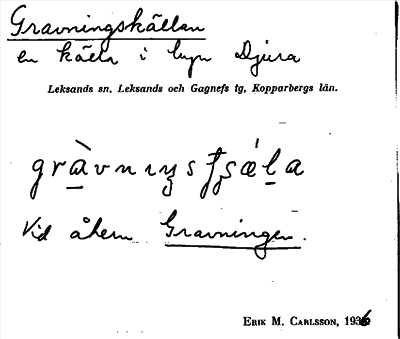 Gravningskällan
en källa i byn Djura
Leksands sn, Leksands och Gagnefs tg, Kopparbergs län.
Vid åkern Gravningen.
ERIK M. CARLSSON, 1936